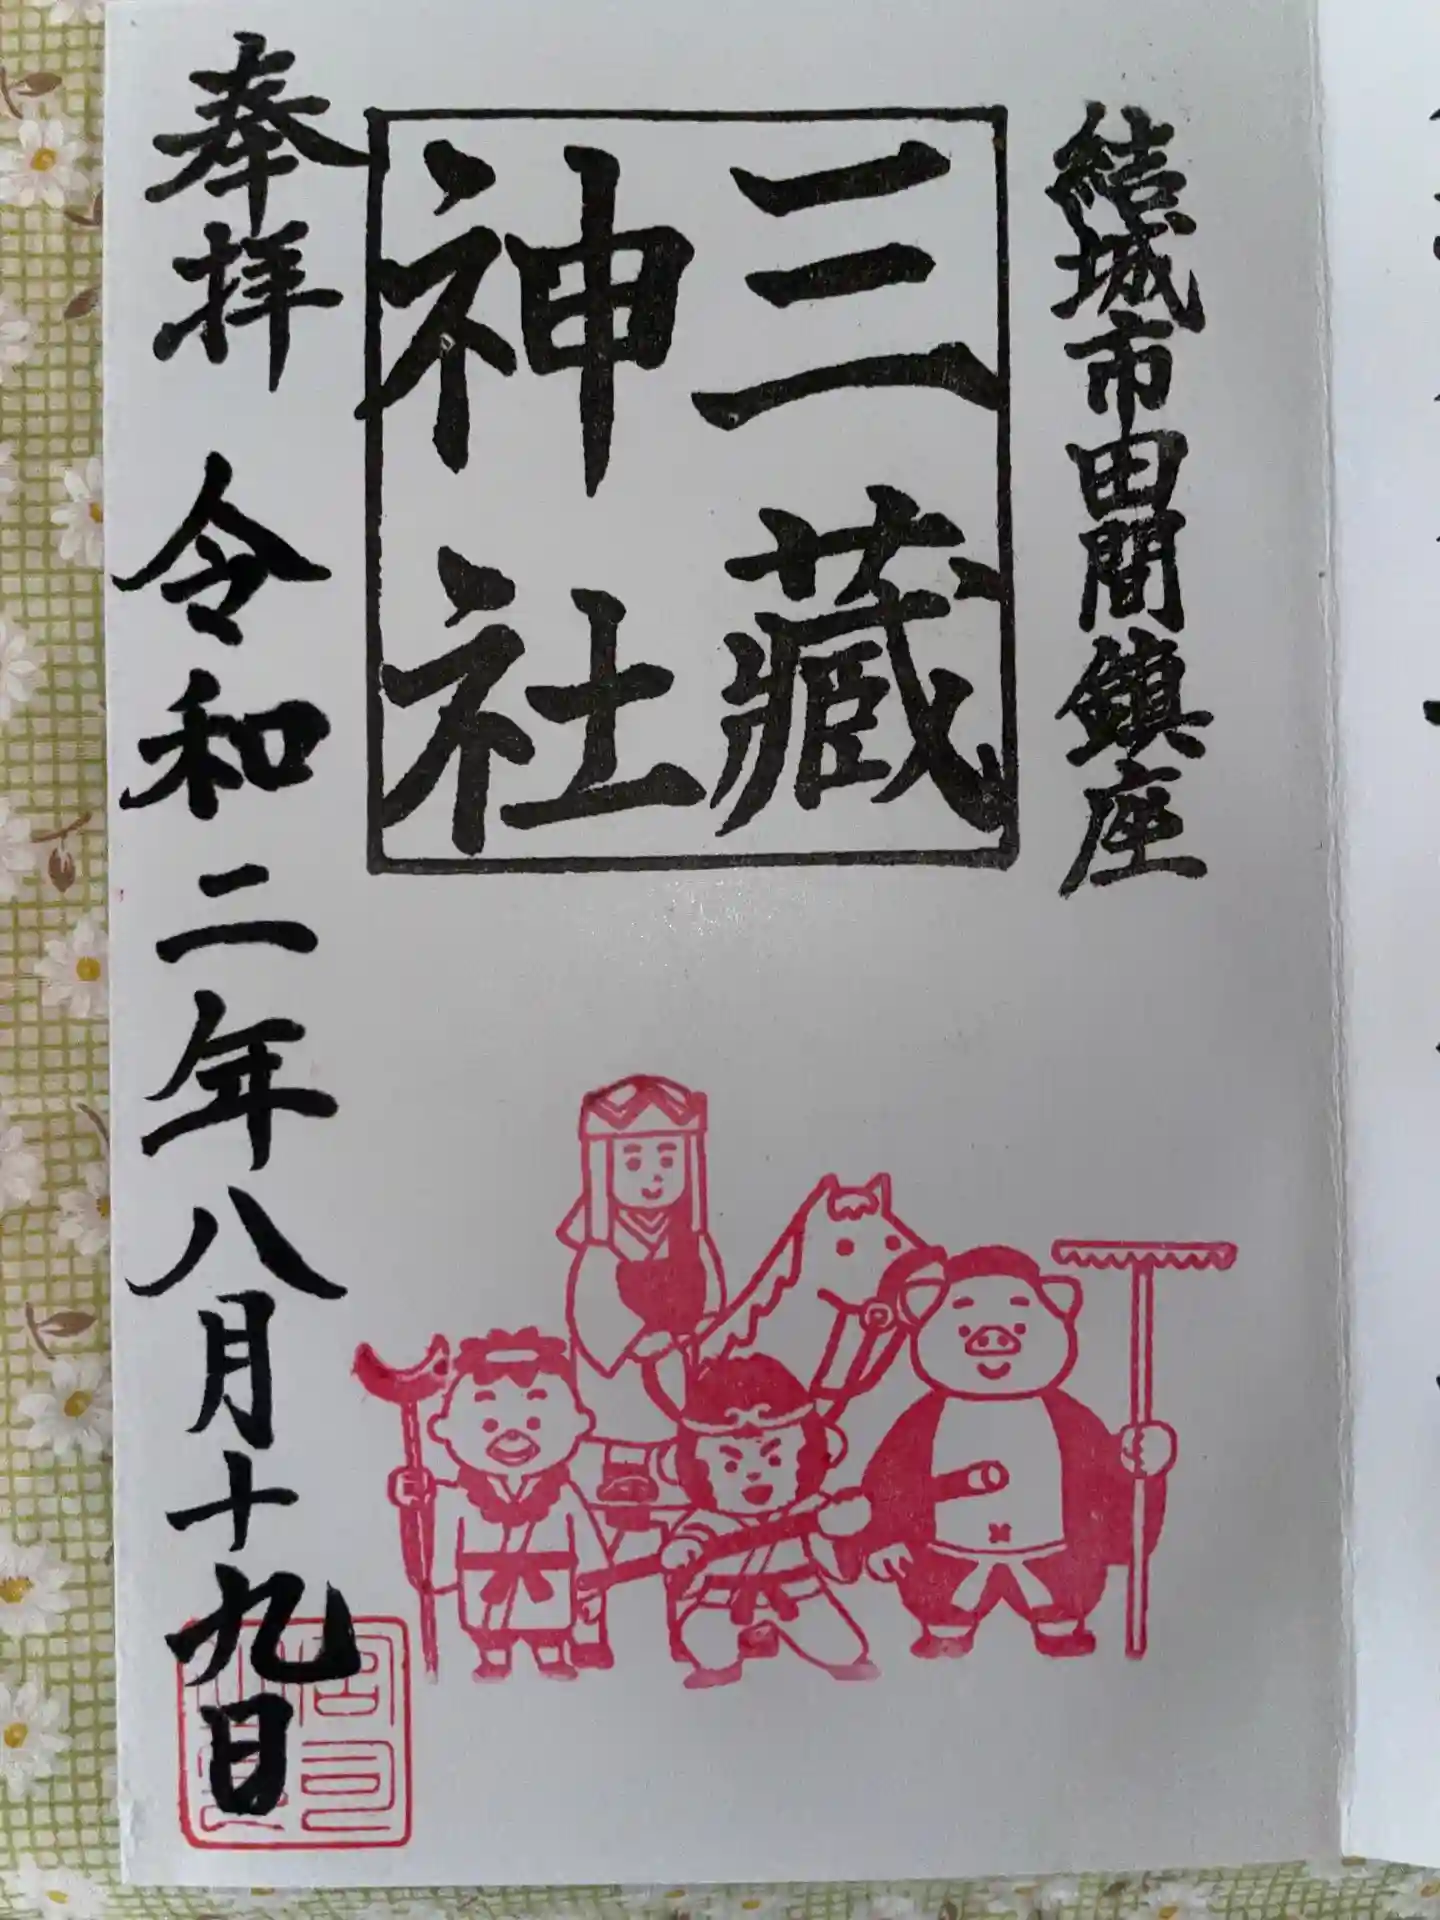 結城市田間鎮座
三蔵
神社
奉拝 令和二年八月十九日